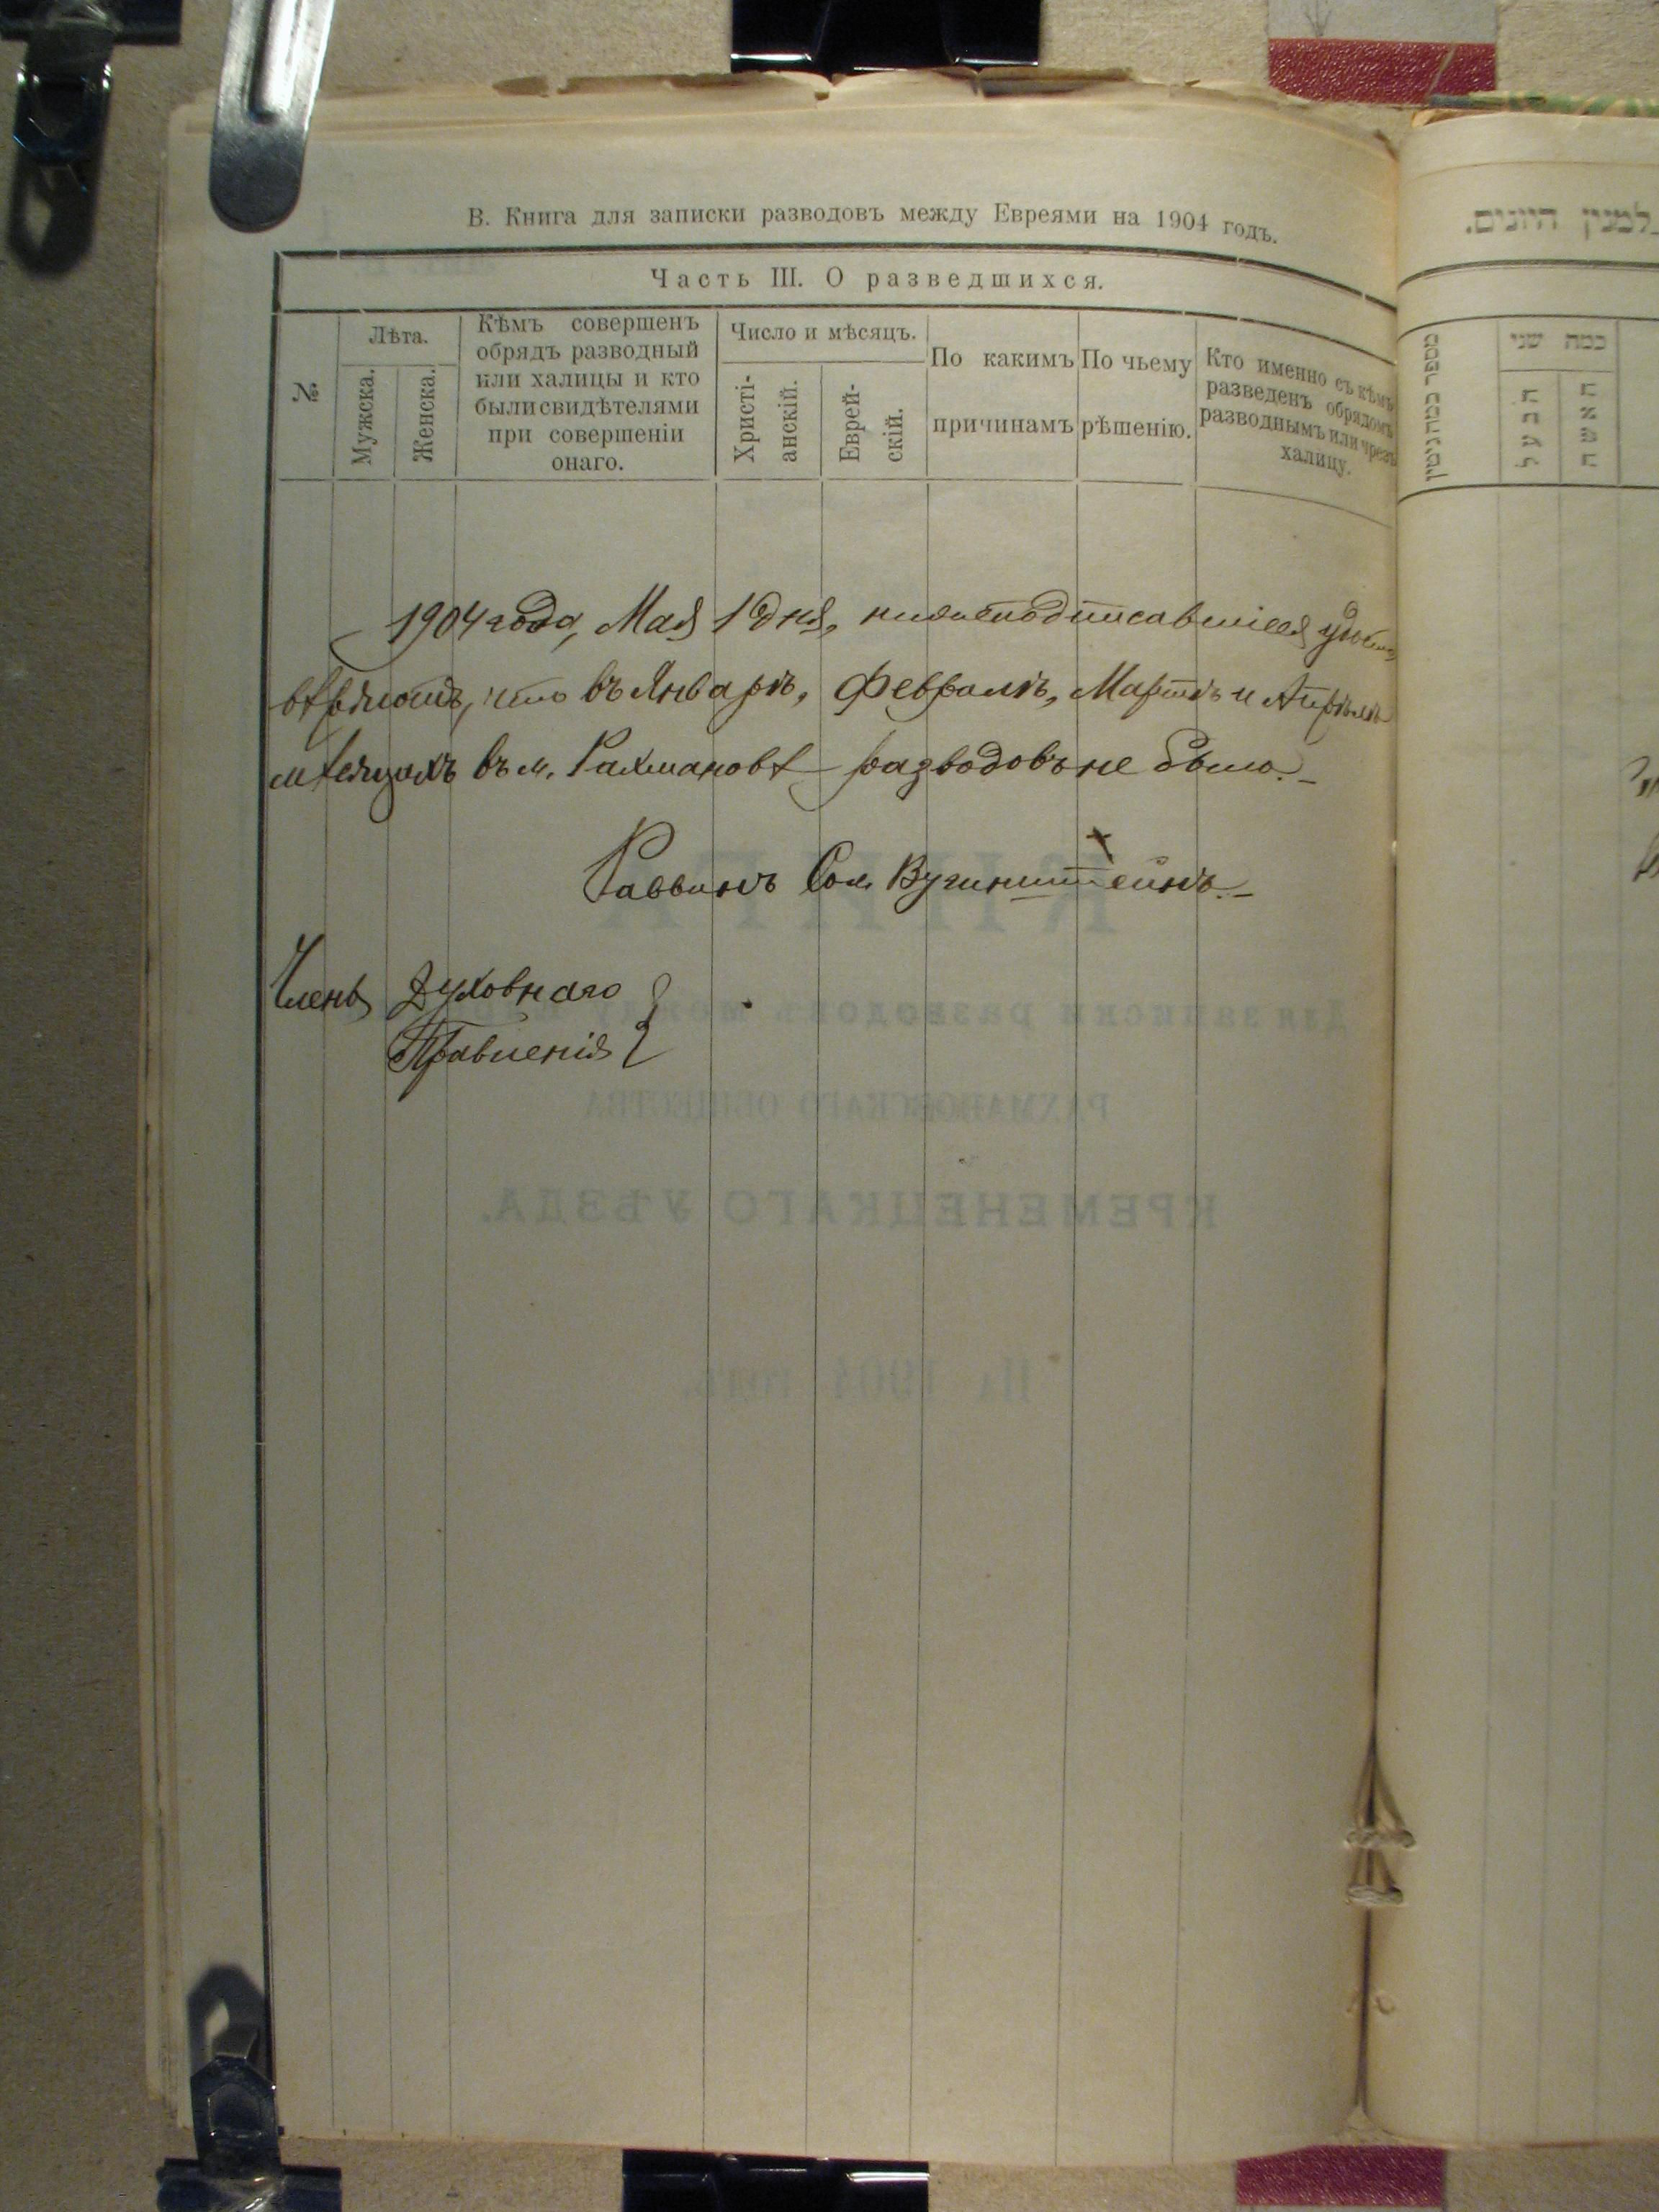 В. Книга для записки разводовъ между Евреями на 1904 годъ.
Часть III. О разведшихся.
№
Лѣта.
Мужска.
Женска.
Кѣмъ совершенъ
обрядъ разводный
или халицы и кто
были свидѣтелями
при совершеніи
онаго.
Число и мѣсяцъ.
Христі-
анскій.
Еврей-
скій.
По какимъ
причинамъ
По чьему
рѣшенію.
Кто именно съ кѣмъ
разведенъ обрядомъ
разводнымъ или чрезъ
халицу.
1904 года, Мая 1 дня, нижеподписавшіеся удосто
вѣряютъ, что въ Январѣ, Февралѣ, Мартѣ и Апрѣлѣ
мѣсяцахъ въ м. Рахмановѣ разводовъ не было.
Раввинъ Сол.
Члены Духовнаго
Правленія
КНИГА
Для записки разводовъ между
РАХМАНОВСКАГО ОБЩЕСТВА
КРЕМЕНЕЦКАГО УѢЗДА.
На 1904 годъ.
למנין היונים.
מספר כמה גיטין
כמה שני
הבעל
האשה